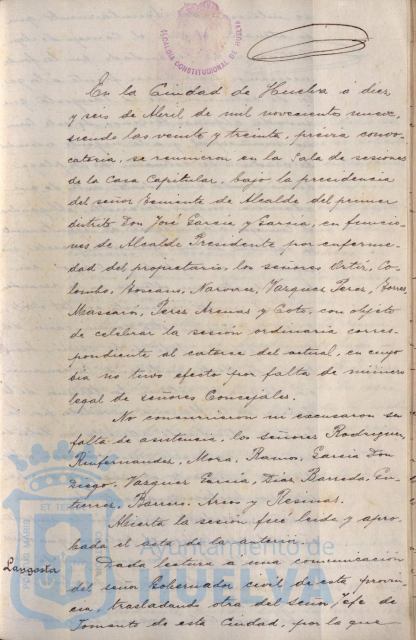 ALCALDIA CONSTITUCIONAL DE HUELVA
En la Ciudad de Huelva a diez
y seis de Abril de mil novecientos nueve,
siendo las veinte y treinta, previa convo-
catoria, se reunieron en la Sala de sesiones
de la Casa Capitular, bajo la presidencia
del señor Teniente de Alcalde del primer
distrito Don José García y García, en funcio-
nes de Alcalde Presidente por enferme-
dad del propietario, los señores Ortiz, Co-
lombo, Toscano, Narvaez, Vazquez Perez, Torres,
Mascaro, Perez Arenas y Coto, con objeto
de celebrar la sesión ordinaria corres-
pondiente al catorce del actual, en cuyo
dia no tuvo efecto por falta de número
legal de señores Concejales.
No concurrieron ni escusaron su
falta de asistencia, los señores Rodriguez,
Rufernandez, Mora, Ramo, García Don
Diego, Vazquez García, Diaz Barreda, Gu-
tierrez, Barrero, Arco y Resinas.
Abierta la sesión fué leida y apro-
bada el acta de la anterior.
Langosta
Dada lectura a una comunicación
del señor Gobernador civil de esta provin-
cia, trasladando otra del señor Jefe de
Fomento de esta Ciudad, por la que
Ayuntamiento de
HUELVA